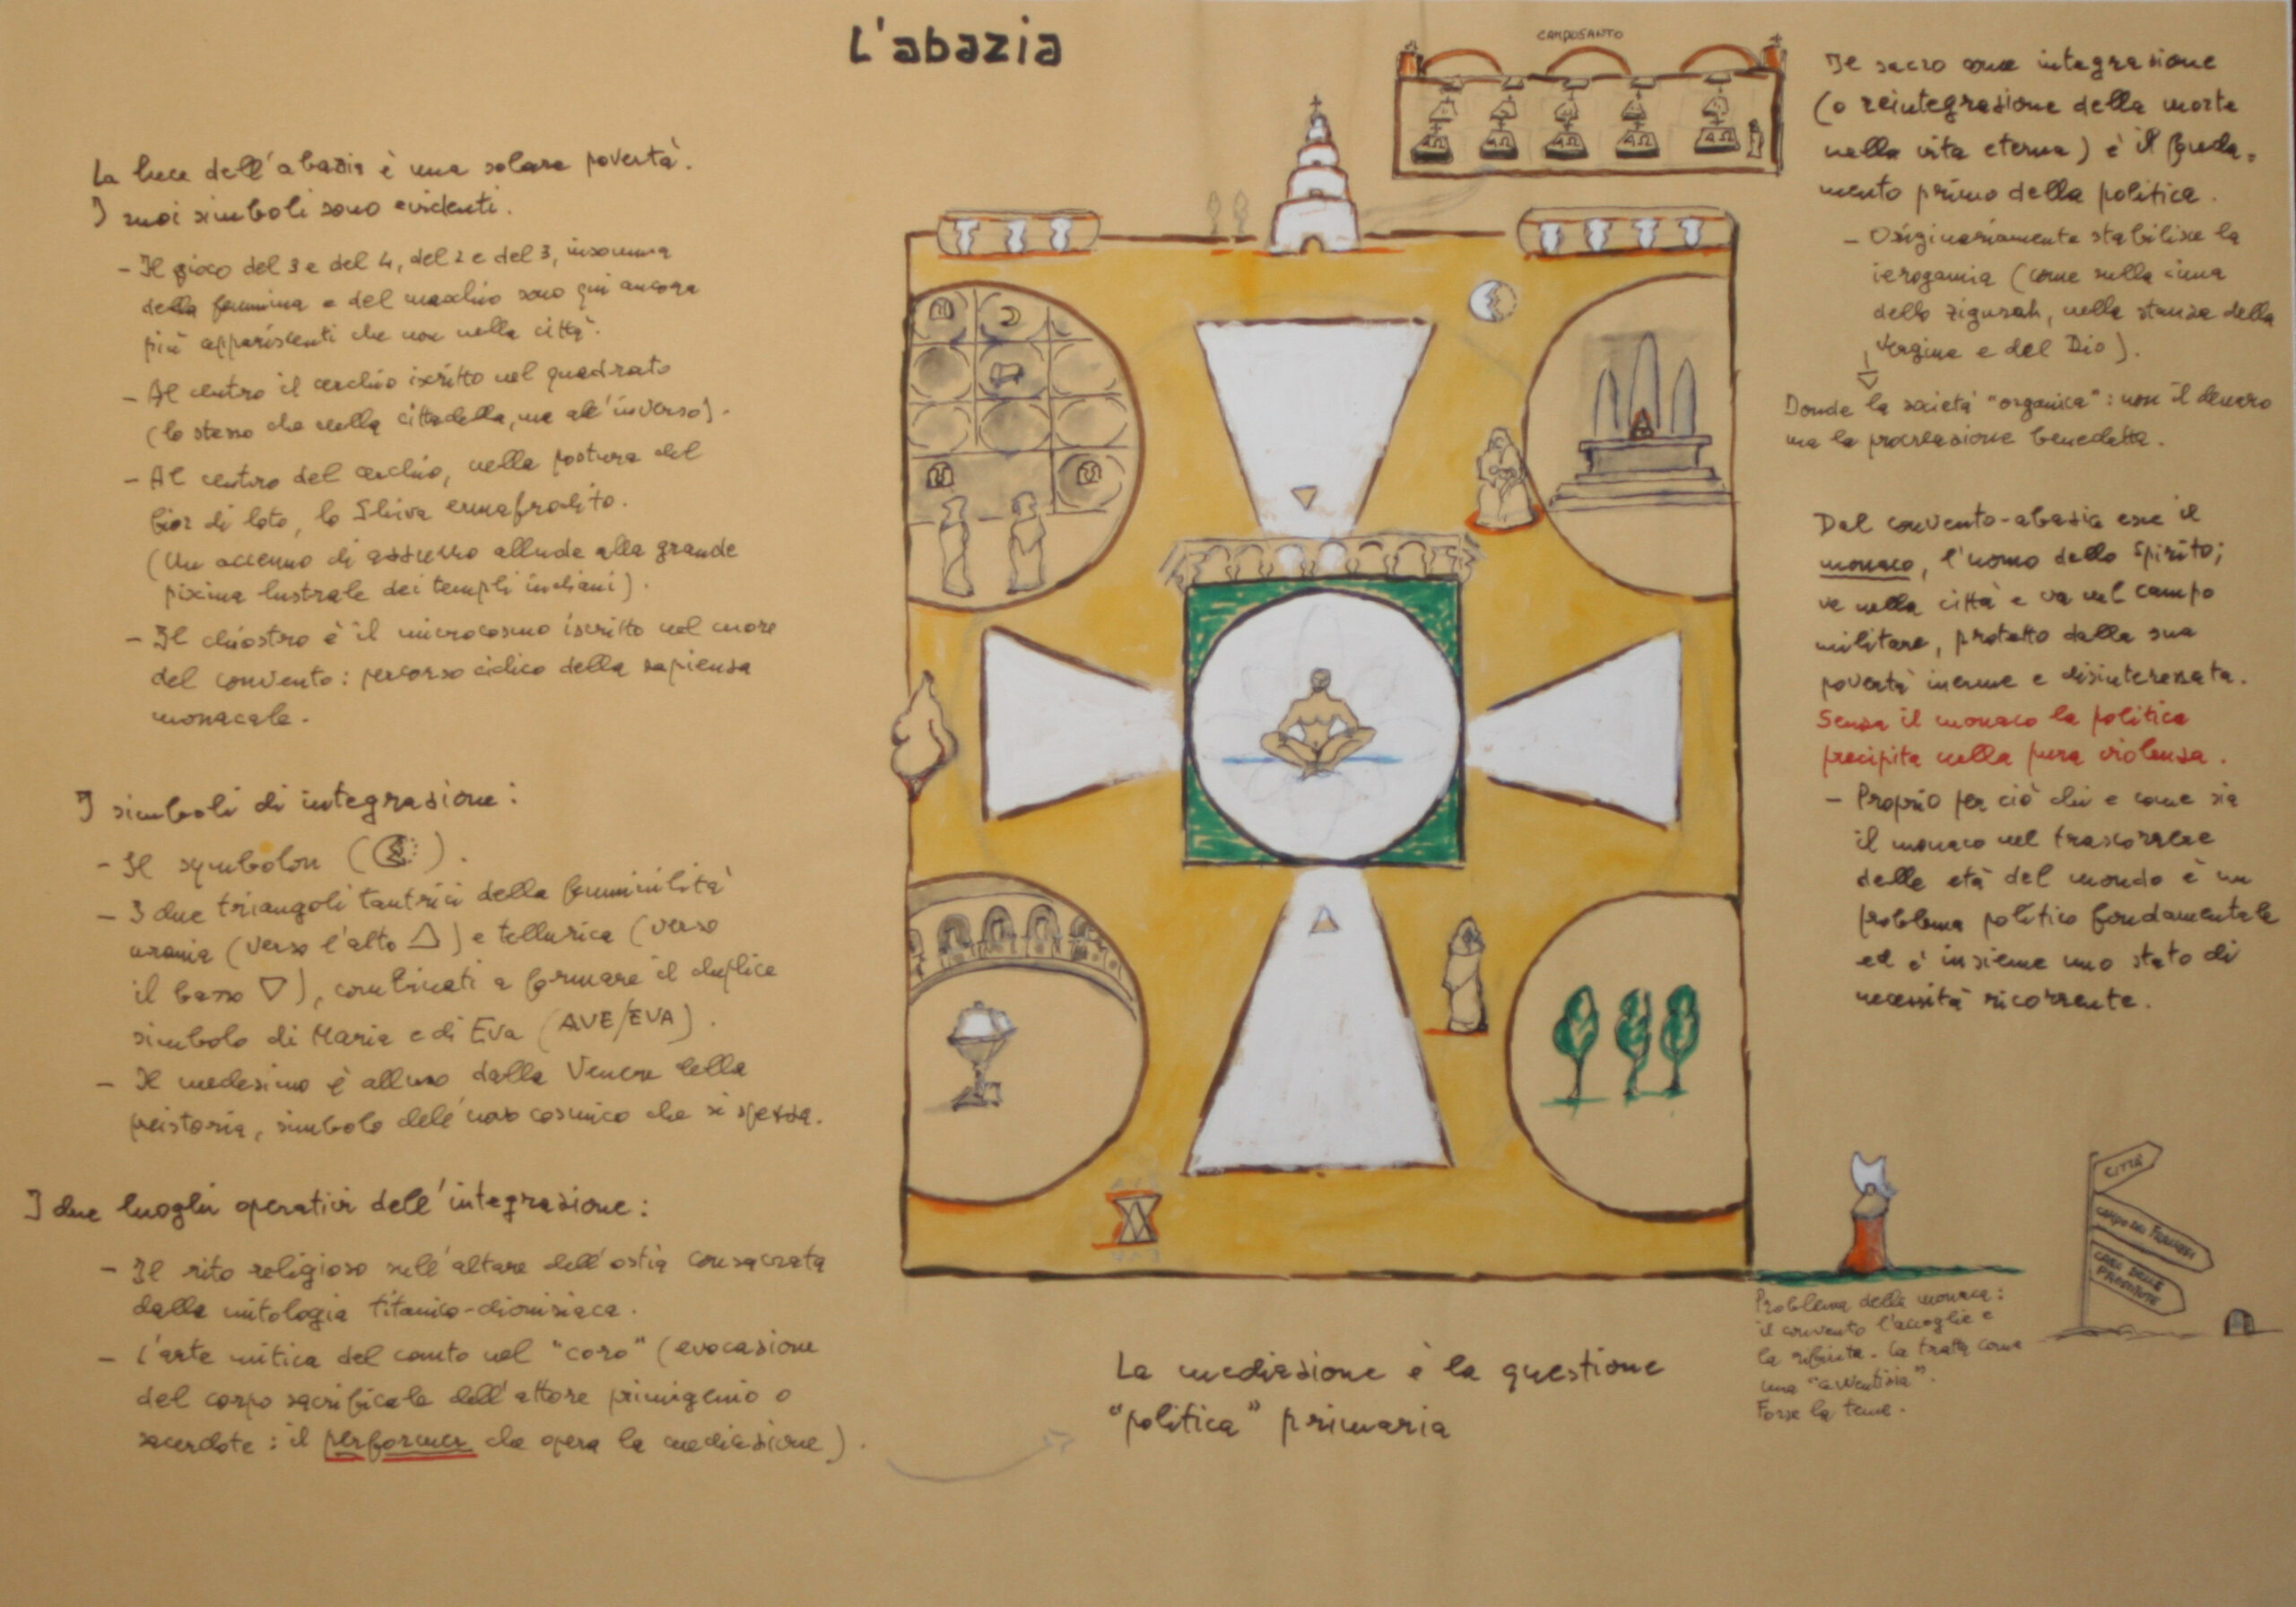 L'abazia
La luce dell'abazia è una solare povertà.
I suoi simboli sono evidenti.
- Il gioco del 3 e del 4, del 2 e del 3, insomma
della femmina e del maschio sono qui ancora
più appariscenti che non nella città.
- Al centro il cerchio iscritto nel quadrato
(lo stesso che nella cittadella, ma all'inverso).
- Al centro del cerchio, nella postura del
fior di loto, lo Shiva ermafrodito.
(Un accenno di azzurro allude alla grande
piscina lustrale dei templi indiani).
- Il chiostro è il microcosmo iscritto nel cuore
del convento: percorso ciclico della sapienza
monacale.
I simboli di integrazione:
- Il symbolon ( ).
- I due triangoli tantrici della femminilità
urania (verso l'alto △) e tellurica (verso
il basso ▽), combinati a formare il duplice
simbolo di Maria e di Eva (AVE/EVA).
- Il medesimo è alluso dalla Venere della
preistoria, simbolo dell'uovo cosmico che si spezza.
I due luoghi operativi dell'integrazione:
- Il rito religioso sull'altare dell'ostia consacrata
dalla mitologia titanico-dionisiaca.
- L'arte mitica del canto nel "coro" (evocazione
del corpo sacrificale dell'attore primigenio o
sacerdote: il performer che opera la mediazione).
La mediazione è la questione
"politica" primaria
CAMPOSANTO
ΑΩ ΑΩ ΑΩ ΑΩ ΑΩ
Il sacro come integrazione
(o reintegrazione della morte
nella vita eterna) è il fonda=
mento primo della politica.
- Originariamente stabilisce la
ierogamia (come sulla cima
dello zigurah, nella stanza della
Vergine e del Dio).
Donde la società "organica": non il denaro
ma la procreazione benedetta.
Dal convento-abazia esce il
monaco, l'uomo dello Spirito;
va nella città e va nel campo
militare, protetto dalla sua
povertà inerme e disinteressata.
Senza il monaco la politica
precipita nella pura violenza.
- Proprio per ciò chi e come sia
il monaco nel trascorrere
delle età del mondo è un
problema politico fondamentale
ed è insieme uno stato di
necessità ricorrente.
CITTÀ
CAMPO DEI
CASA DELLE
PROSTITUTE
Problema della monaca:
il convento l'accoglie e
la rifiuta. La tratta come
una
Forse la teme.